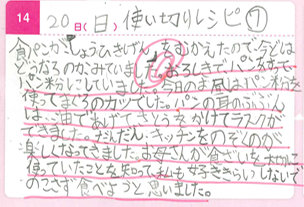 14 20日(日)使い切りレシピ⑦
食パンがしょうひきげんをむかえたので、今どは
どうなるのかみていました。おろしきでパンをすって、
パン粉にしていました。今日のお昼はパン粉を
使ってまぐろのカツでした。パンの耳のぶぶん
は、油であげてさとうをかけてラスクが
できました。だんだん、キッチンをのぞくのが
楽しくなってきました。お母さんが食ざいを大切に
使っていることを知って、私も女子ききらいしないで
のこさず食べようと思いました。